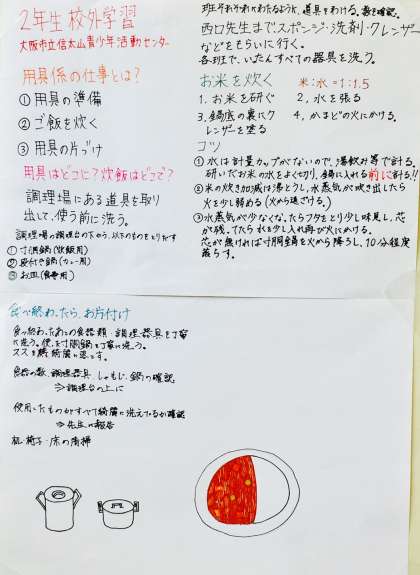 2年生校外学習
大阪市立信太山青少年活動センター
用具係の仕事とは?
① 用具の準備
② ご飯を炊く
③ 用具の片づけ
用具はどこに?炊飯はどこで?
調理場にある道具を取り
出して、使う前に洗う。
調理場の調理台の下から、以下のものをとりだす
① 寸胴鍋(炊飯用)
② 段付き鍋(カレー用)
③ お皿(食事用)
班がそれぞれわたるように、道具をわける。数を確認。
西口先生まで:スポンジ・洗剤・クレンザー
などをもらいに行く。
各班で、いったんすべての器具を洗う。
お米を炊く 米:水=1:1.5
1. お米を研ぐ 2. 水を張る
3. 鍋底の裏にク
レンザーを塗る
4. かまどの火にかける。
コツ
① 水は計量カップがないので、湯飲み等で計る。
研いだお米の水をよく切り、鍋に入れる前に計る!!
② 米の炊き加減は沸とうし、水蒸気が吹き出したら
火を少し弱める(火から遠ざける。)
③ 水蒸気が少なくなったらフタをとり少し味見し、芯
が残ってたら水を少し入れ再び火にかける。
芯が無ければ寸胴鍋を火から降ろし、10分程度
蒸らす。
食べ終わったら、お片付け
食べ終わったあとの食器類、調理器具を丁寧
に洗う。使った寸胴鍋を丁寧に洗う。
ススも綺麗に落とす。
食器の数、調理器具、しゃもじ、鍋の確認
⇒調理台の上に
使用したものがすべて綺麗に洗えているか確認
⇒先生に報告
机・椅子・床の清掃